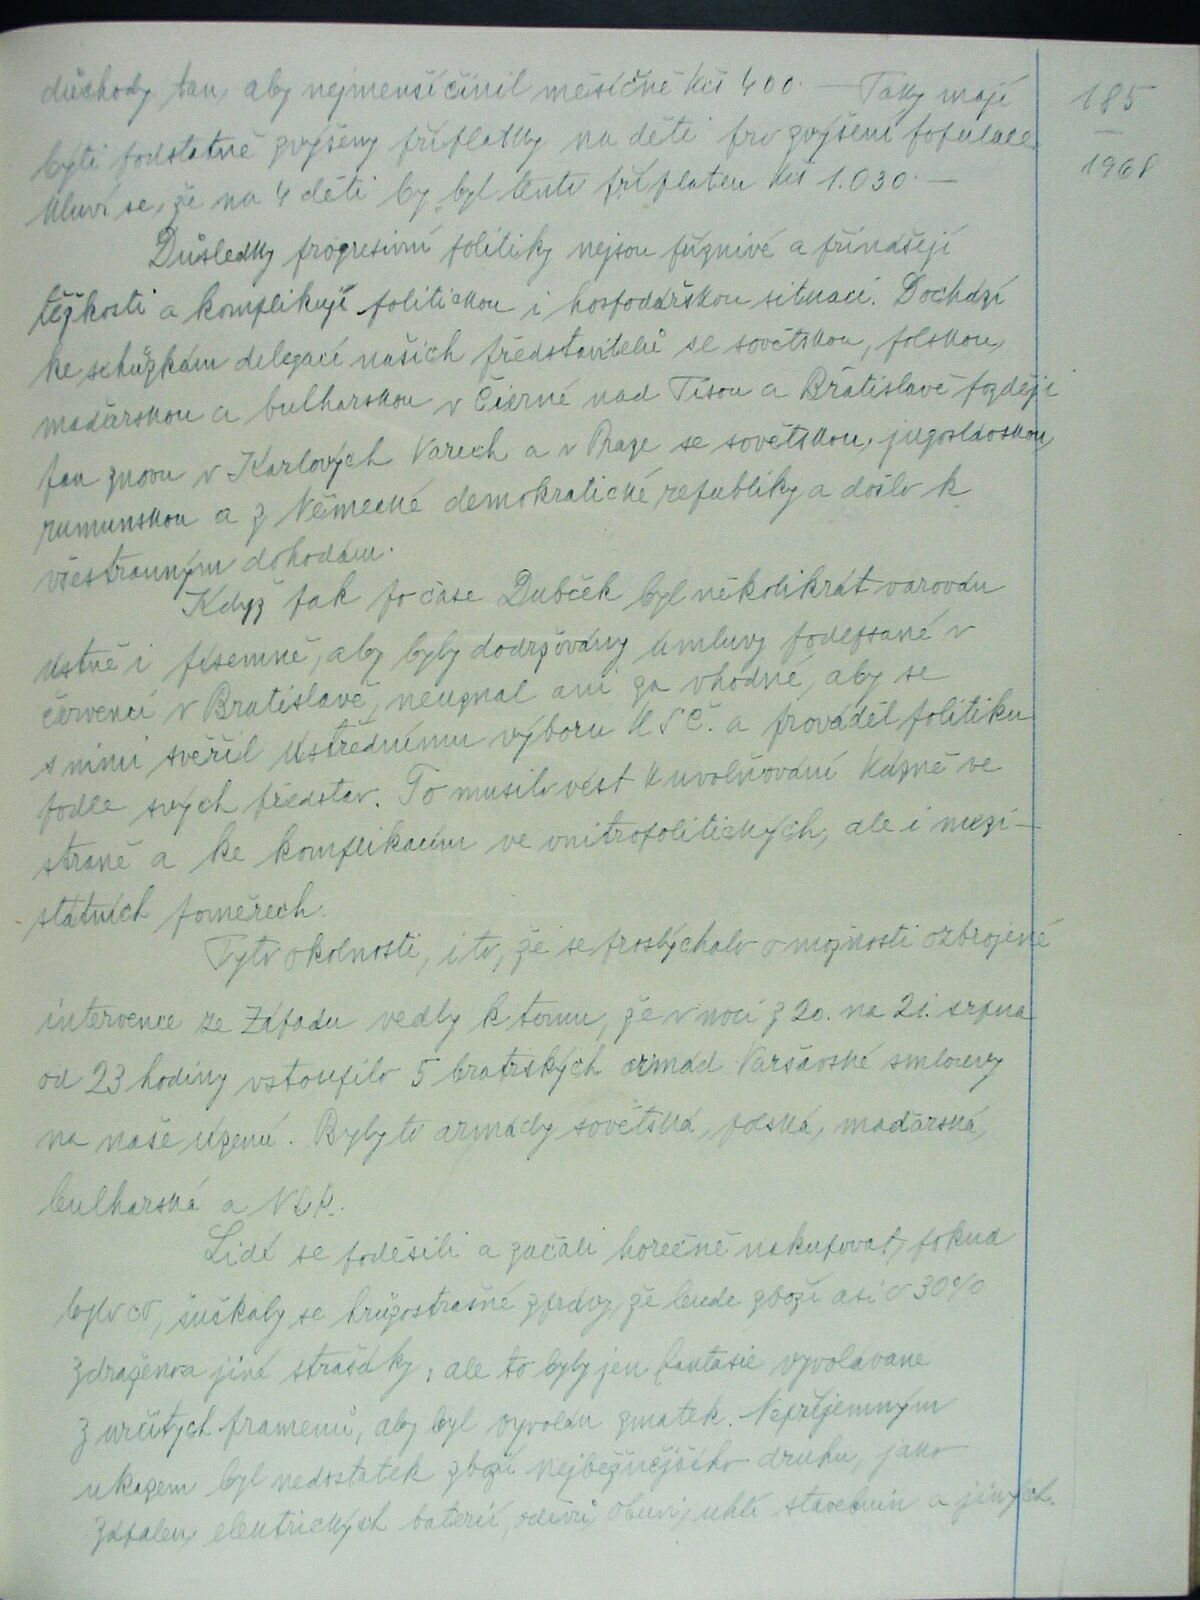 důchody tak, aby nejmenší činil měsíčně Kčs 400.— Taky mají
185
býti podstatně zvýšeny příplatky na děti pro zvýšení populace
1968
Mluví se, že na 4 děti by byl tento příplatek Kčs 1.030.—
Důsledky progresivní politiky nejsou příznivé a přinášejí
těžkosti a komplikují politickou i hospodářskou situaci. Dochází
ke schůzkám delegací našich představitelů se sovětskou, polskou,
maďarskou a bulharskou v Čierné nad Tisou a Bratislavě později
pak znovu v Karlových Varech a v Praze se sovětskou, jugoslávskou,
rumunskou a z Německé demokratické republiky a došlo k
všestranným dohodám.
Když pak po čase Dubček byl několikrát varován
ústně i písemně, aby byly dodržovány úmluvy podepsané v
červenci v Bratislavě, neuznal ani za vhodné, aby se
s nimi svěřil Ústřednímu výboru KSČ. a prováděl politiku
podle svých představ. To musilo vést k uvolňování kázně ve
straně a ke komplikacím ve vnitropolitických, ale i mezi-
státních poměrech.
Tyto okolnosti, i to, že se proslýchalo o možnosti ozbrojené
intervence ze Západu vedly k tomu, že v noci z 20. na 21. srpna
od 23 hodiny vstoupilo 5 bratrských armád Varšavské smlouvy
na naše území. Byly to armády sovětská, polská, maďarská,
bulharská a NDR.
Lidé se poděsili a začali horečně nakupovat, pokud
bylo co, šuškaly se hrůzostrašné zprávy, že bude zboží asi o 30%
zdraženo a jiné strašáky, ale to byly jen fantasie vyvolávané
z určitých pramenů, aby byl vyvolán zmatek. Nepříjemným
úkazem byl nedostatek zboží nejběžnějšího druhu, jako
zápalek, elektrických baterií, oděvů, obuvi, uhlí stavebnin a jiných.